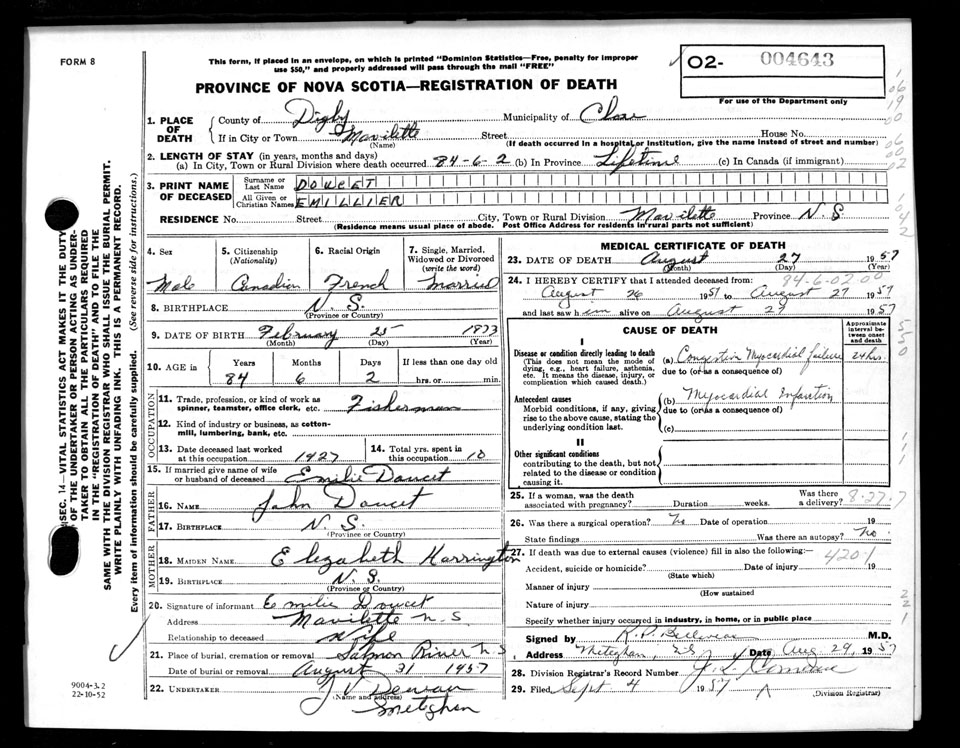 FORM 8
This form, if placed in an envelope, on which is printed "Dominion Statistics—Free, penalty for improper
use $50," and properly addressed will pass through the mail "FREE"
O2- 004643
For use of the Department only
PROVINCE OF NOVA SCOTIA—REGISTRATION OF DEATH
1. PLACE OF DEATH
County of Digby Municipality of Clare
If in City or Town Mavilette Street House No.
(Name) (If death occurred in a hospital or institution, give the name instead of street and number)
2. LENGTH OF STAY (in years, months and days)
(a) In City, Town or Rural Division where death occurred 84-6-2 (b) In Province Lifetime (c) In Canada (if immigrant)
3. PRINT NAME OF DECEASED
Surname or Last Name DOUCET
All Given or Christian Names EMILLIER
RESIDENCE No. Street City, Town or Rural Division Mavilette Province N.S.
(Residence means usual place of abode. Post Office Address for residents in rural parts not sufficient)
4. Sex
Male
5. Citizenship (Nationality)
Canadian
6. Racial Origin
French
7. Single, Married, Widowed or Divorced (write the word)
Married
8. BIRTHPLACE N.S.
(Province or Country)
9. DATE OF BIRTH February 25 1873
(Month) (Day) (Year)
10. AGE in
Years Months Days If less than one day old
84 6 2 hrs. or min.
OCCUPATION
11. Trade, profession, or kind of work as spinner, teamster, office clerk, etc. Fisherman
12. Kind of industry or business, as cotton-mill, lumbering, bank, etc.
13. Date deceased last worked at this occupation 1927
14. Total yrs. spent in this occupation 10
15. If married give name of wife or husband of deceased Emilie Doucet
FATHER
16. NAME John Doucet
17. BIRTHPLACE N.S.
(Province or Country)
MOTHER
18. MAIDEN NAME Elizabeth Harrington
19. BIRTHPLACE N.S.
(Province or Country)
20. Signature of informant Emilie Doucet
Address Mavilette N.S
Relationship to deceased Wife
21. Place of burial, cremation or removal Salmon River N.S
Date of burial or removal August 31 1957
22. UNDERTAKER
(Name and address)
Meteghan
MEDICAL CERTIFICATE OF DEATH
23. DATE OF DEATH August 27 1957
(Month) (Day) (Year)
84-6-02 00
24. I HEREBY CERTIFY that I attended deceased from:
August 26 1957 to August 27 1957
and last saw him alive on August 27 1957
CAUSE OF DEATH
Approximate interval between onset and death
I
Disease or condition directly leading to death
(This does not mean the mode of dying, e.g., heart failure, asthenia, etc. It means the disease, injury, or complication which caused death.)
(a) Congestive Myocardial failure 24 hrs.
due to (or as a consequence of)
Antecedent causes
Morbid conditions, if any, giving rise to the above cause, stating the underlying condition last.
(b) Myocardial Infarction
due to (or as a consequence of)
(c)
II
Other significant conditions
contributing to the death, but not related to the disease or condition causing it.
25. If a woman, was the death associated with pregnancy? Duration weeks. Was there a delivery?
8-27-7
26. Was there a surgical operation? No Date of operation 19
State findings Was there an autopsy? No
27. If death was due to external causes (violence) fill in also the following:—
4201
Accident, suicide or homicide? Date of injury 19
(State which)
Manner of injury
(How sustained
Nature of injury
Specify whether injury occurred in industry, in home, or in public place
Signed by M.D.
Address Meteghan, N.S. Date Aug 29, 1957
28. Division Registrar's Record Number
29. Filed Sept 4 1957
(Division Registrar)
SEC. 14—VITAL STATISTICS ACT MAKES IT THE DUTY
OF THE UNDERTAKER OR PERSON ACTING AS UNDER-
TAKER TO OBTAIN ALL THE PARTICULARS REQUIRED
IN THE "REGISTRATION OF DEATH" AND TO FILE THE
SAME WITH THE DIVISION REGISTRAR WHO SHALL ISSUE THE BURIAL PERMIT.
WRITE PLAINLY WITH UNFADING INK. THIS IS A PERMANENT RECORD.
Every item of information should be carefully supplied. (See reverse side for instructions.)
9004-3.2
22-10-52